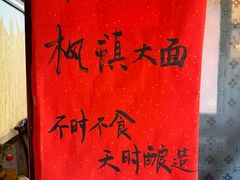 枫镇大面
不时不食
天时酿造